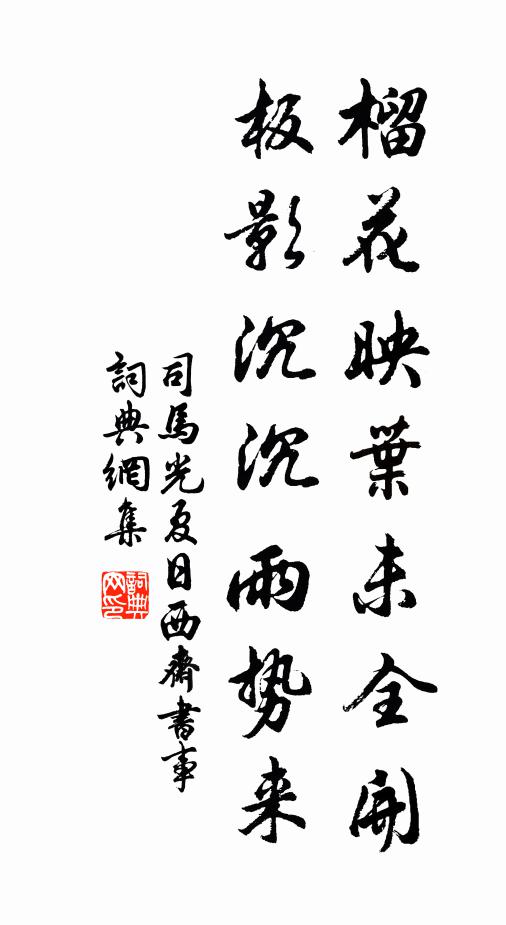 榴花映葉未全開
板影沉沉雨势来
司馬光夏日西齋書事
詞典網集
詞典网印